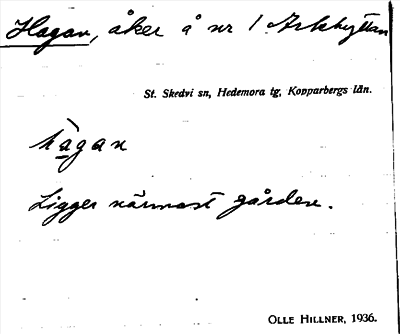 Hagan, åker å nr 1 Arkhyttan
St. Skedvi sn, Hedemora tg, Kopparbergs län.
hàgan
Ligger närmast gården.
OLLE HILLNER, 1936.